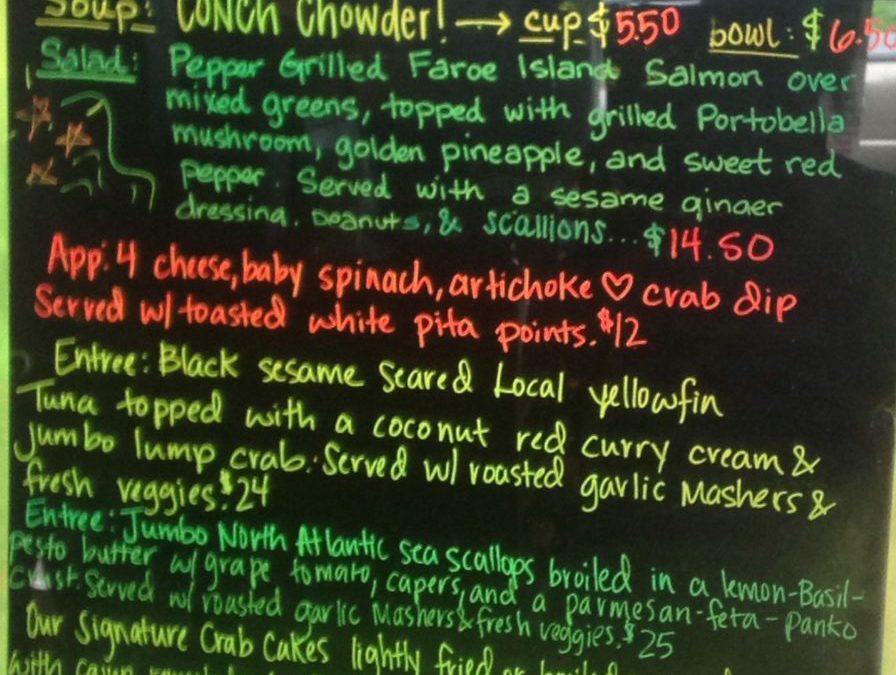 Soup: CONCH Chowder! → cup $5.50 bowl: $6.50
Salad: Pepper Grilled Faroe Island Salmon over
mixed greens, topped with grilled Portobella
mushroom, golden pineapple, and sweet red
pepper. Served with a sesame ginger
dressing. peanuts, & scallions... $14.50
App: 4 cheese, baby spinach, artichoke ♡ crab dip
Served w/ toasted white pita points. $12
Entree: Black sesame seared Local yellowfin
Tuna topped with a coconut red curry cream &
jumbo lump crab. Served w/ roasted garlic Mashers &
fresh veggies. $24
Entree: Jumbo North Atlantic sea scallops broiled in a lemon-Basil-
pesto butter w/ grape tomato, capers, and a parmesan-feta-panko
crust. Served w/ roasted garlic Mashers & fresh veggies. $25
Our Signature Crab Cakes lightly fried or broiled
with cajun